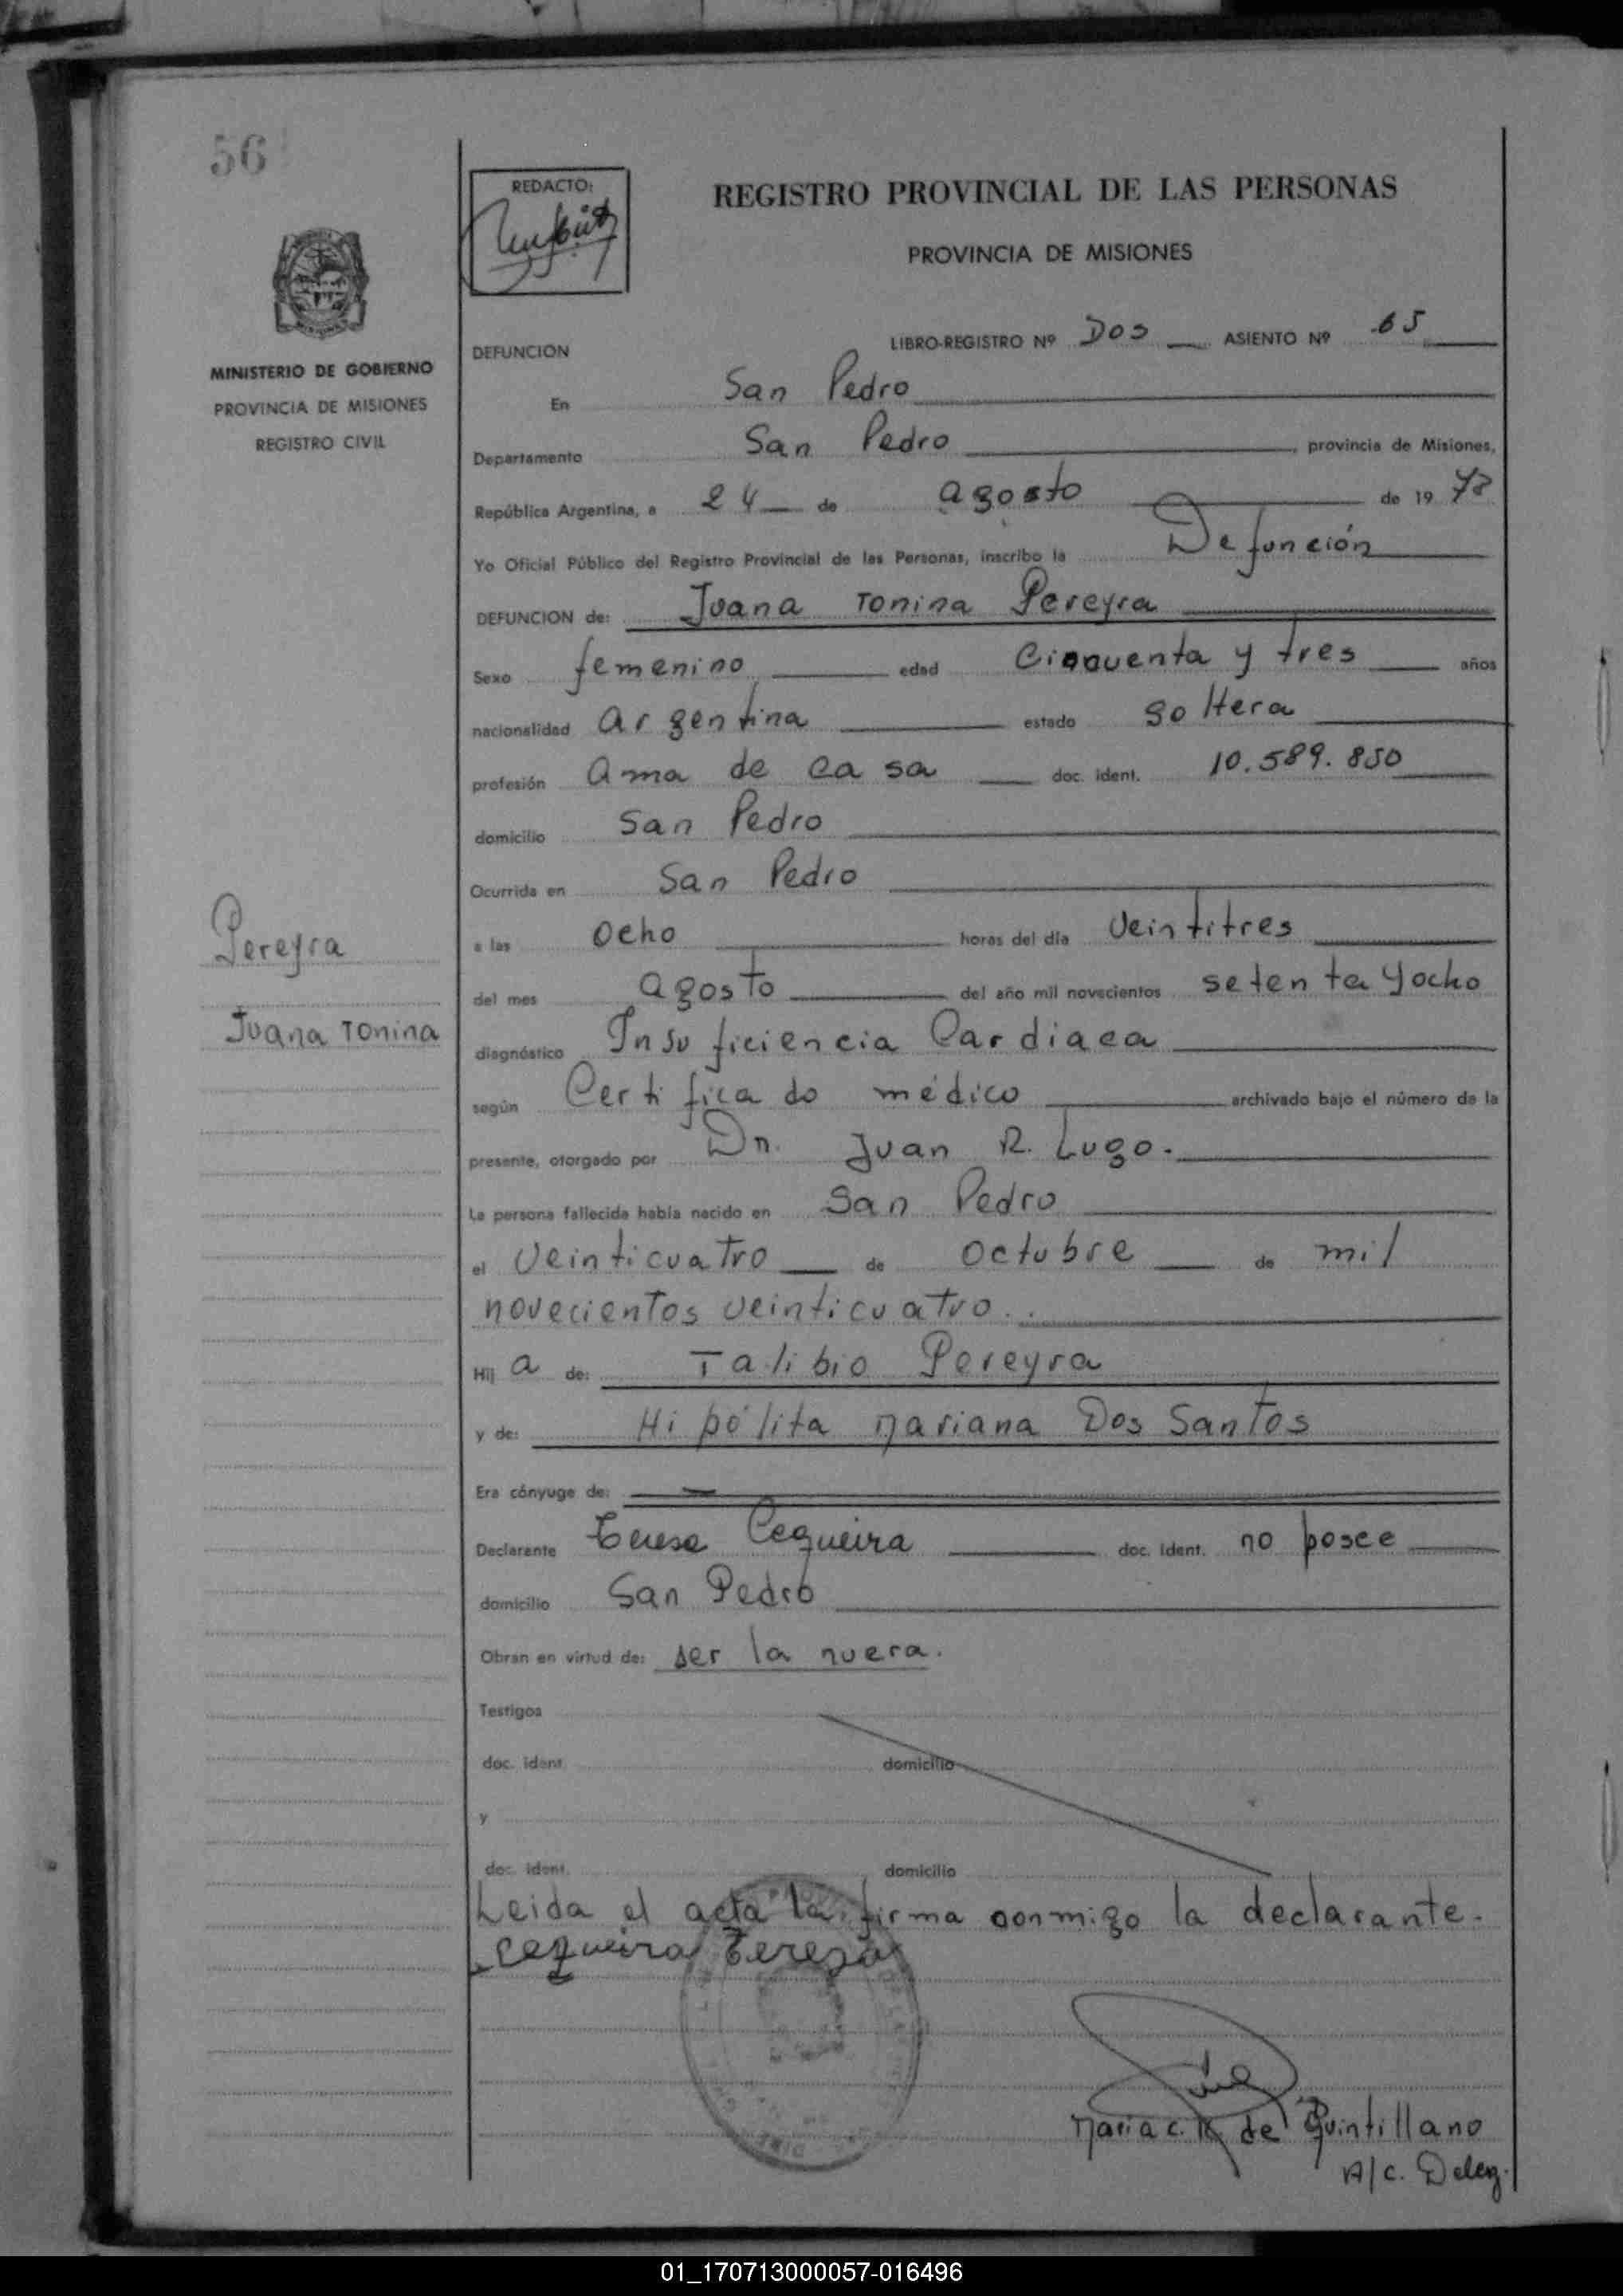 56
REDACTO:
REGISTRO PROVINCIAL DE LAS PERSONAS
PROVINCIA DE MISIONES
MINISTERIO DE GOBIERNO
PROVINCIA DE MISIONES
REGISTRO CIVIL
DEFUNCION
LIBRO-REGISTRO Nº Dos ASIENTO Nº 65
En San Pedro
Departamento San Pedro, provincia de Misiones,
República Argentina, a 24 de agosto de 1978
Yo Oficial Público del Registro Provincial de las Personas, inscribo la Defunción
DEFUNCION de: Juana Tonina Pereyra
Sexo femenino edad Cincuenta y tres años
nacionalidad argentina estado soltera
profesión ama de casa doc. ident. 10.589.850
domicilio San Pedro
Ocurrida en San Pedro
a las ocho horas del día veintitres
del mes agosto del año mil novecientos setenta y ocho
Pereyra
Juana Tonina
diagnóstico Insuficiencia Cardiaca
según Certificado médico archivado bajo el número de la
presente, otorgado por Dn. Juan R. Lugo.
La persona fallecida había nacido en San Pedro
el veinticuatro de octubre de mil
novecientos veinticuatro..
Hij a de: Talibio Pereyra
y de: Hipólita Mariana Dos Santos
Era cónyuge de:
Declarante Teresa Cequeira doc. ident. no posee
domicilio San Pedro
Obran en virtud de: ser la nuera.
Testigos
doc. ident. domicilio
y
doc. ident. domicilio
Leida el acta la firma conmigo la declarante.
Cequeira Tereza
Maria C. K de Quintillano
A/c. Deleg.
01_170713000057-016496